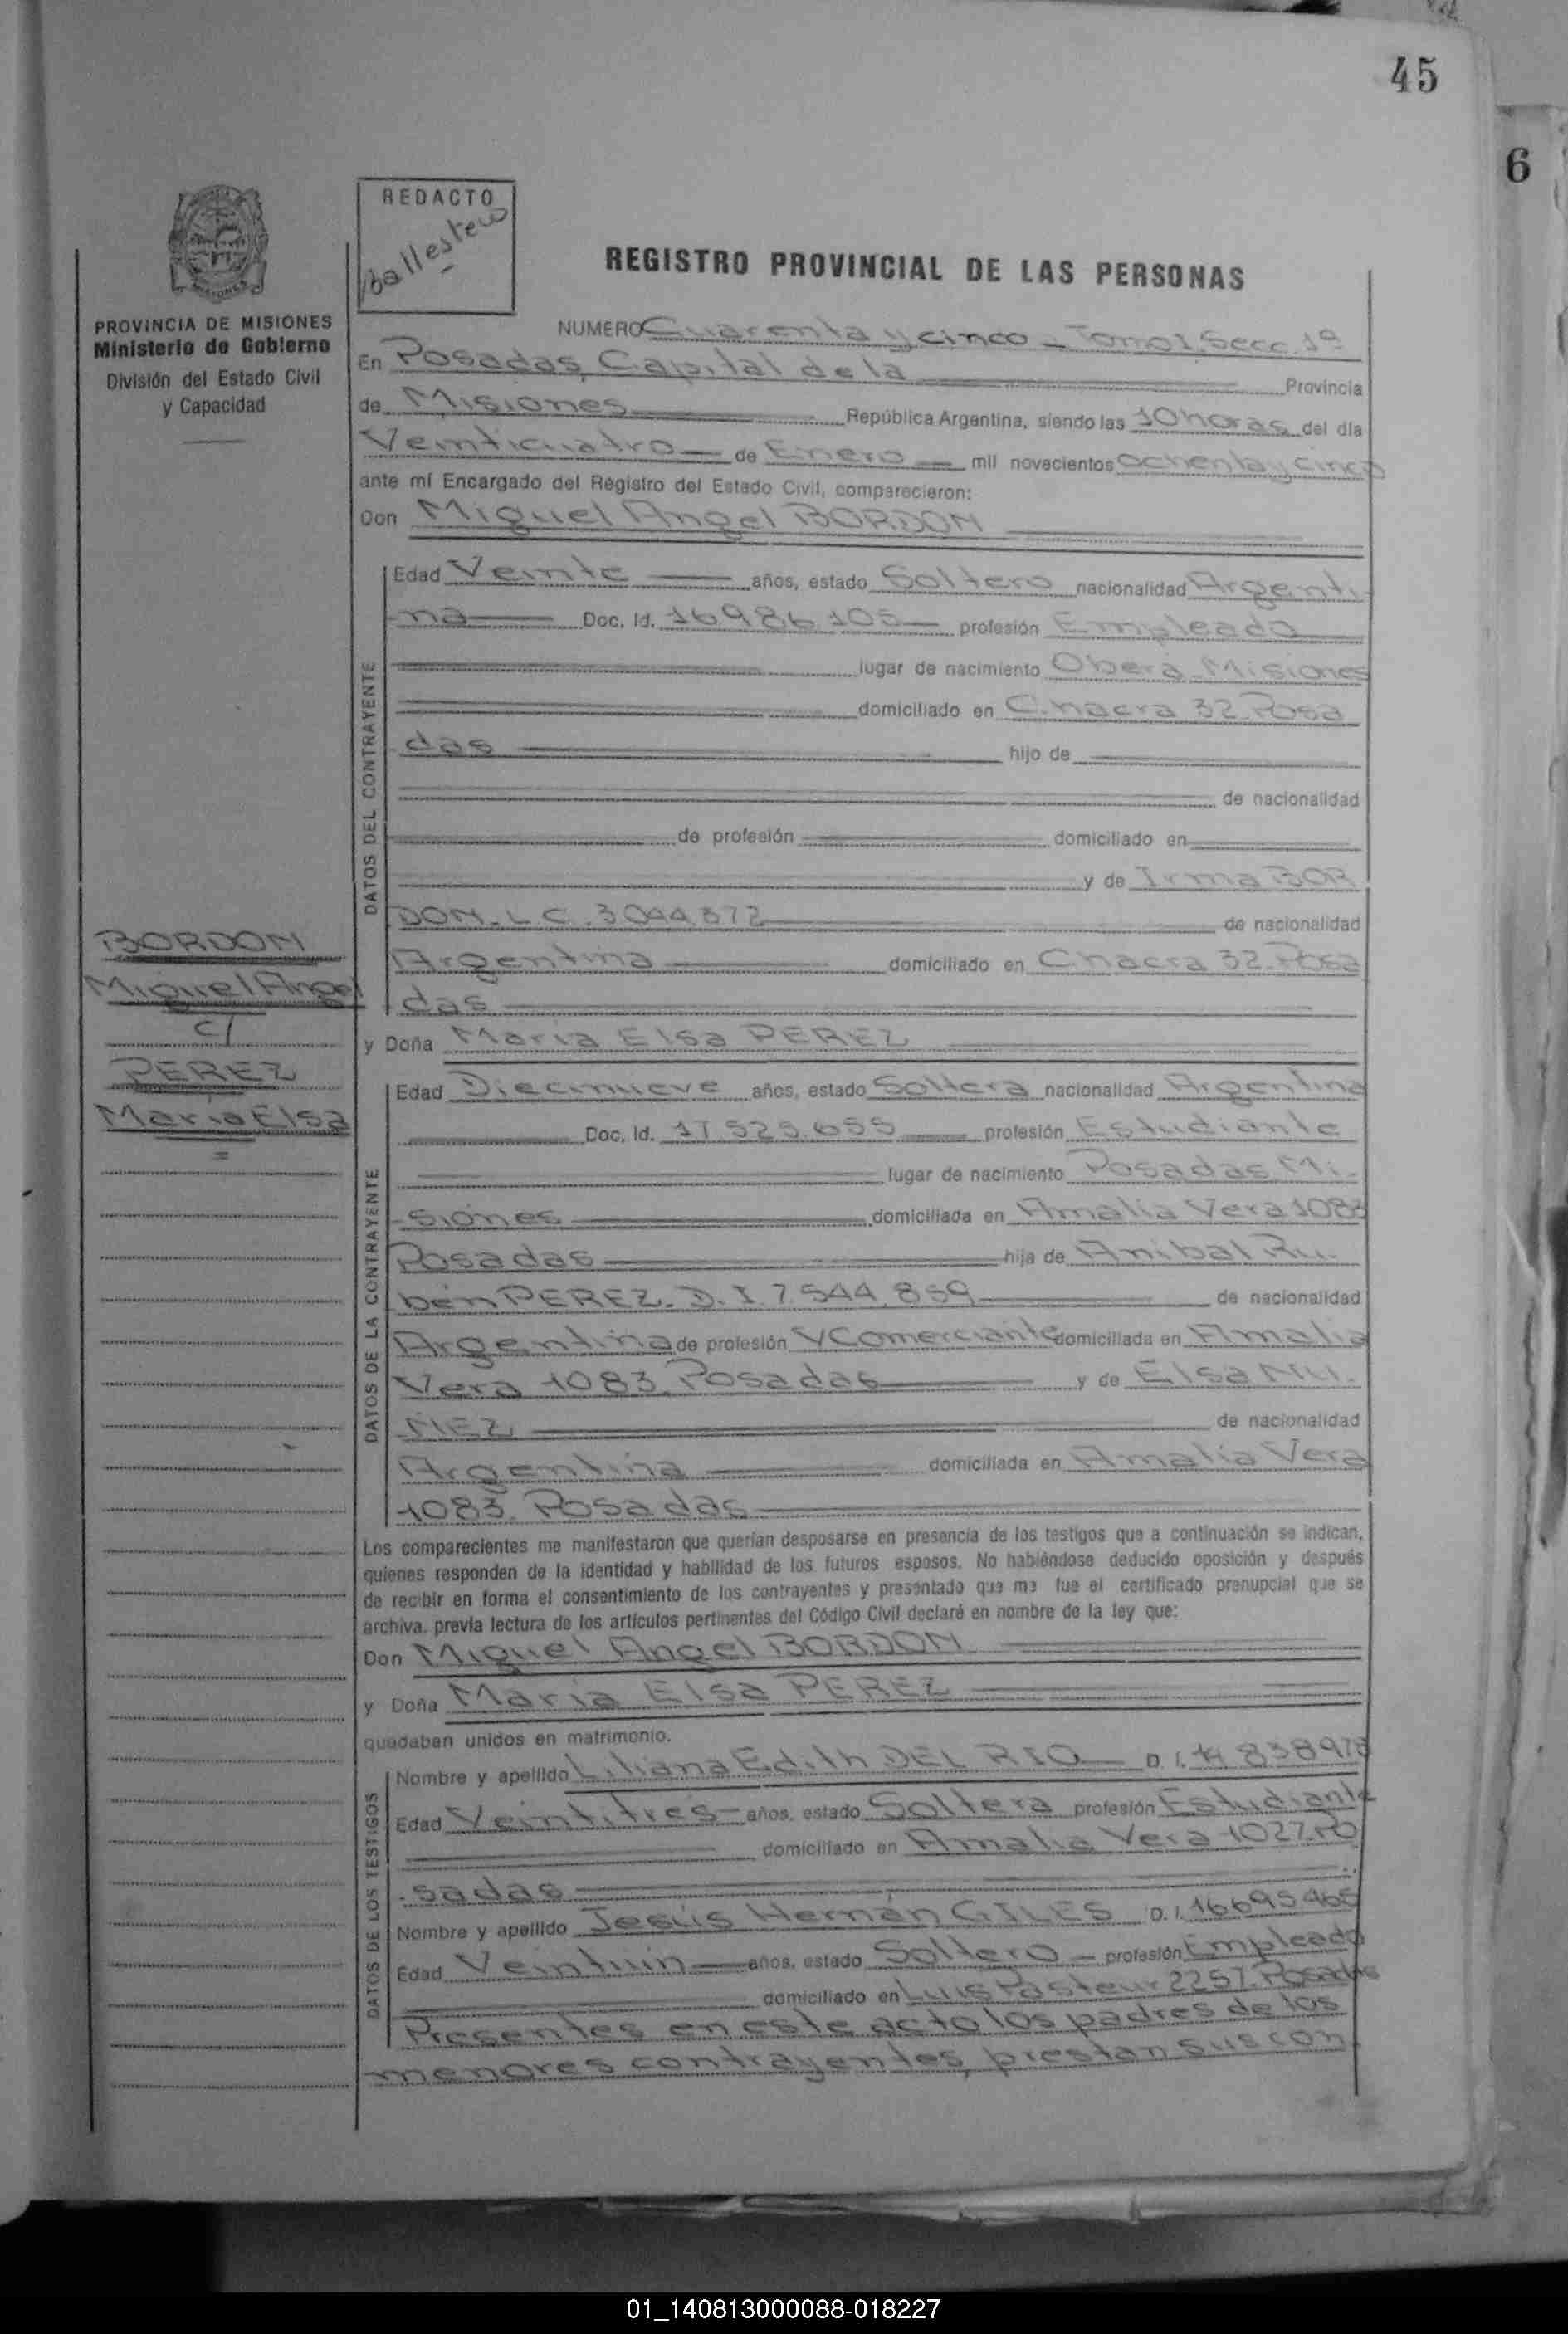 45
6
REDACTO
Ballestero
REGISTRO PROVINCIAL DE LAS PERSONAS
PROVINCIA DE MISIONES
Ministerio de Gobierno
División del Estado Civil
y Capacidad
NUMERO Cuarenta y cinco - Tomo I Secc. 1º
En Posadas, Capital de la Provincia
de Misiones República Argentina, siendo las 10 horas del día
Veinticuatro de Enero mil novecientos ochenta y cinco
ante mí Encargado del Registro del Estado Civil, comparecieron:
Don Miguel Angel BORDON
DATOS DEL CONTRAYENTE
Edad Veinte años, estado Soltero nacionalidad Argenti-
na Doc. Id. 16986105 profesión Empleado
lugar de nacimiento Oberá Misiones
domiciliado en Chacra 32. Posa
das hijo de
de nacionalidad
de profesión domiciliado en
y de Irma BOR
DON. L.C. 3044.372 de nacionalidad
Argentina domiciliado en Chacra 32. Posa
das
BORDON
Miguel Angel
c/
PEREZ
María Elsa
y Doña María Elsa PEREZ
DATOS DE LA CONTRAYENTE
Edad Diecinueve años, estado Soltera nacionalidad Argentina
Doc. Id. 17.525.655 profesión Estudiante
lugar de nacimiento Posadas, Mi-
siones domiciliada en Amalia Vera 1083
Posadas hija de Anibal Ru-
bén PEREZ. D.I. 7.544.859 de nacionalidad
Argentina de profesión Comerciante domiciliada en Amalia
Vera 1083. Posadas y de Elsa NU-
ÑEZ de nacionalidad
Argentina domiciliada en Amalia Vera
1083. Posadas
Los comparecientes me manifestaron que querían desposarse en presencia de los testigos que a continuación se indican,
quienes responden de la identidad y habilidad de los futuros esposos. No habiéndose deducido oposición y después
de recibir en forma el consentimiento de los contrayentes y presentado que me fue el certificado prenupcial que se
archiva, previa lectura de los artículos pertinentes del Código Civil declaré en nombre de la ley que:
Don Miguel Angel BORDON
y Doña María Elsa PEREZ
quedaban unidos en matrimonio.
DATOS DE LOS TESTIGOS
Nombre y apellido Liliana Edith DEL RIO D.I. 14 838978
Edad Veintitres años, estado Soltera profesión Estudiante
domiciliado en Amalia Vera 1027. Po
sadas
Nombre y apellido Jesús Hernán GILES D.I. 16695465
Edad Veintiun años, estado Soltero profesión Empleado
domiciliado en Luis Pasteur 2257. Posadas
Presentes en este acto los padres de los
menores contrayentes, prestan sus con
01_140813000088-018227